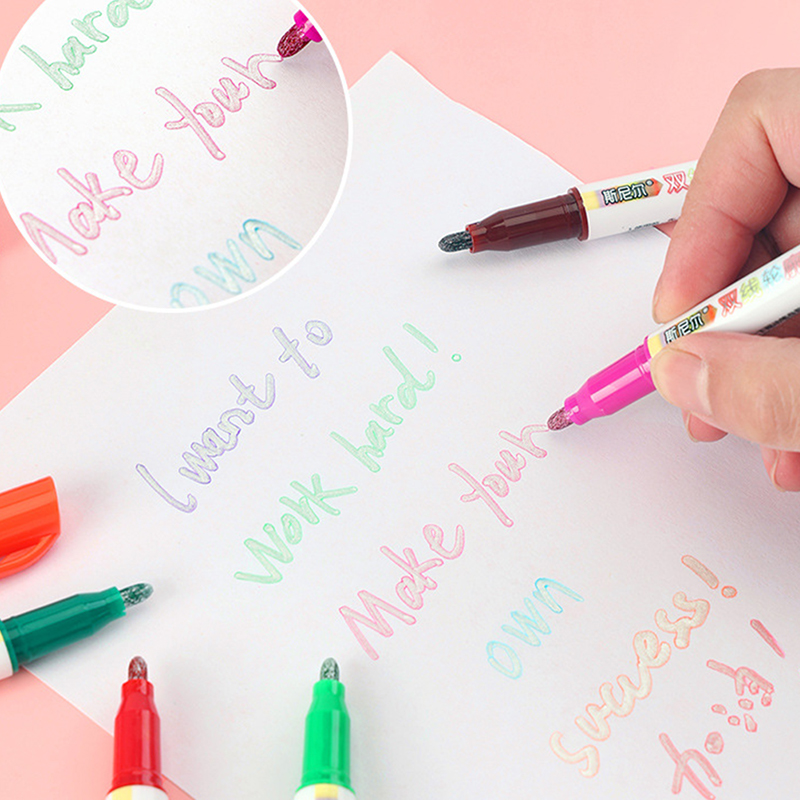 k hard
Make your
own
斯尼尔® 双线
斯尼尔® 双线轮
I want to
Work hard!
Make your
own
Sucuess!
加油!